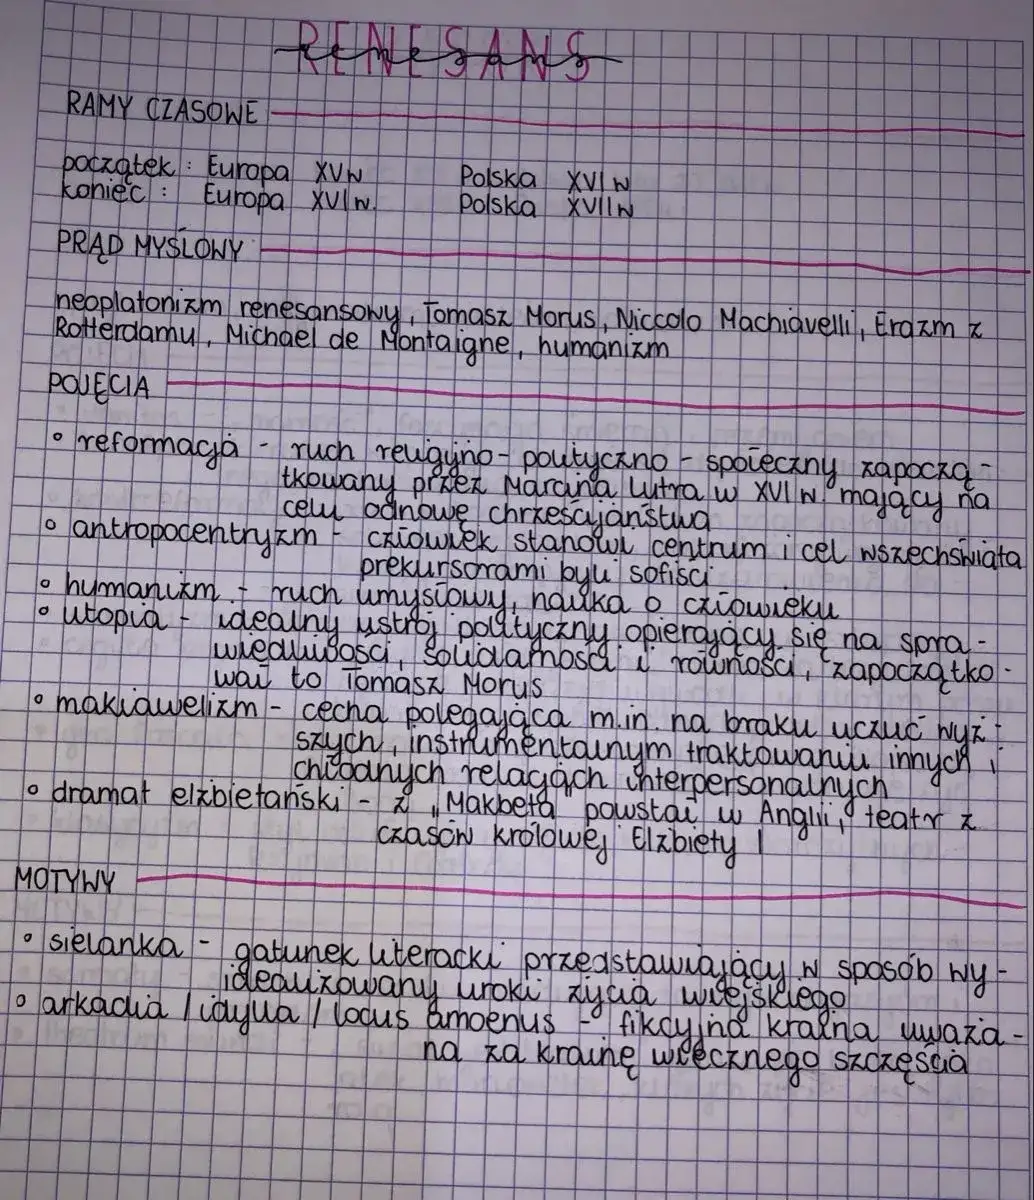 RENESANS
RAMY CZASOWE
początek : Europa XVw Polska XVI w
koniec : Europa XVI w. Polska XVII w
PRĄD MYŚLOWY
neoplatonizm renesansowy, Tomasz Morus, Niccolo Machiavelli, Erazm z
Rotterdamu, Michael de Montaigne, humanizm
POJĘCIA
° reformacja - ruch religijno - polityczno - społeczny zapoczą -
tkowany przez Marcina Lutra w XVI w. mający na
celu odnowę chrześcijaństwa
° antropocentryzm - człowiek stanowi centrum i cel wszechświata
prekursorami byli sofiści
° humanizm - ruch umysłowy, nauka o człowieku
° utopia - idealny ustrój polityczny opierający się na spra -
wiedliwości, solidarności i równości, zapoczątko -
wał to Tomasz Morus
° makiawelizm - cecha polegająca m.in. na braku uczuć wyż -
szych, instrumentalnym traktowaniu innych i
chłodnych relacjach interpersonalnych
° dramat elżbietański - z „Makbeta" powstał w Anglii, teatr z
czasów królowej Elżbiety I
MOTYWY
° sielanka - gatunek literacki przedstawiający w sposób wy -
idealizowany uroki życia wiejskiego
° arkadia / idylla / locus amoenus - fikcyjna kraina uważa -
na za krainę wiecznego szczęścia